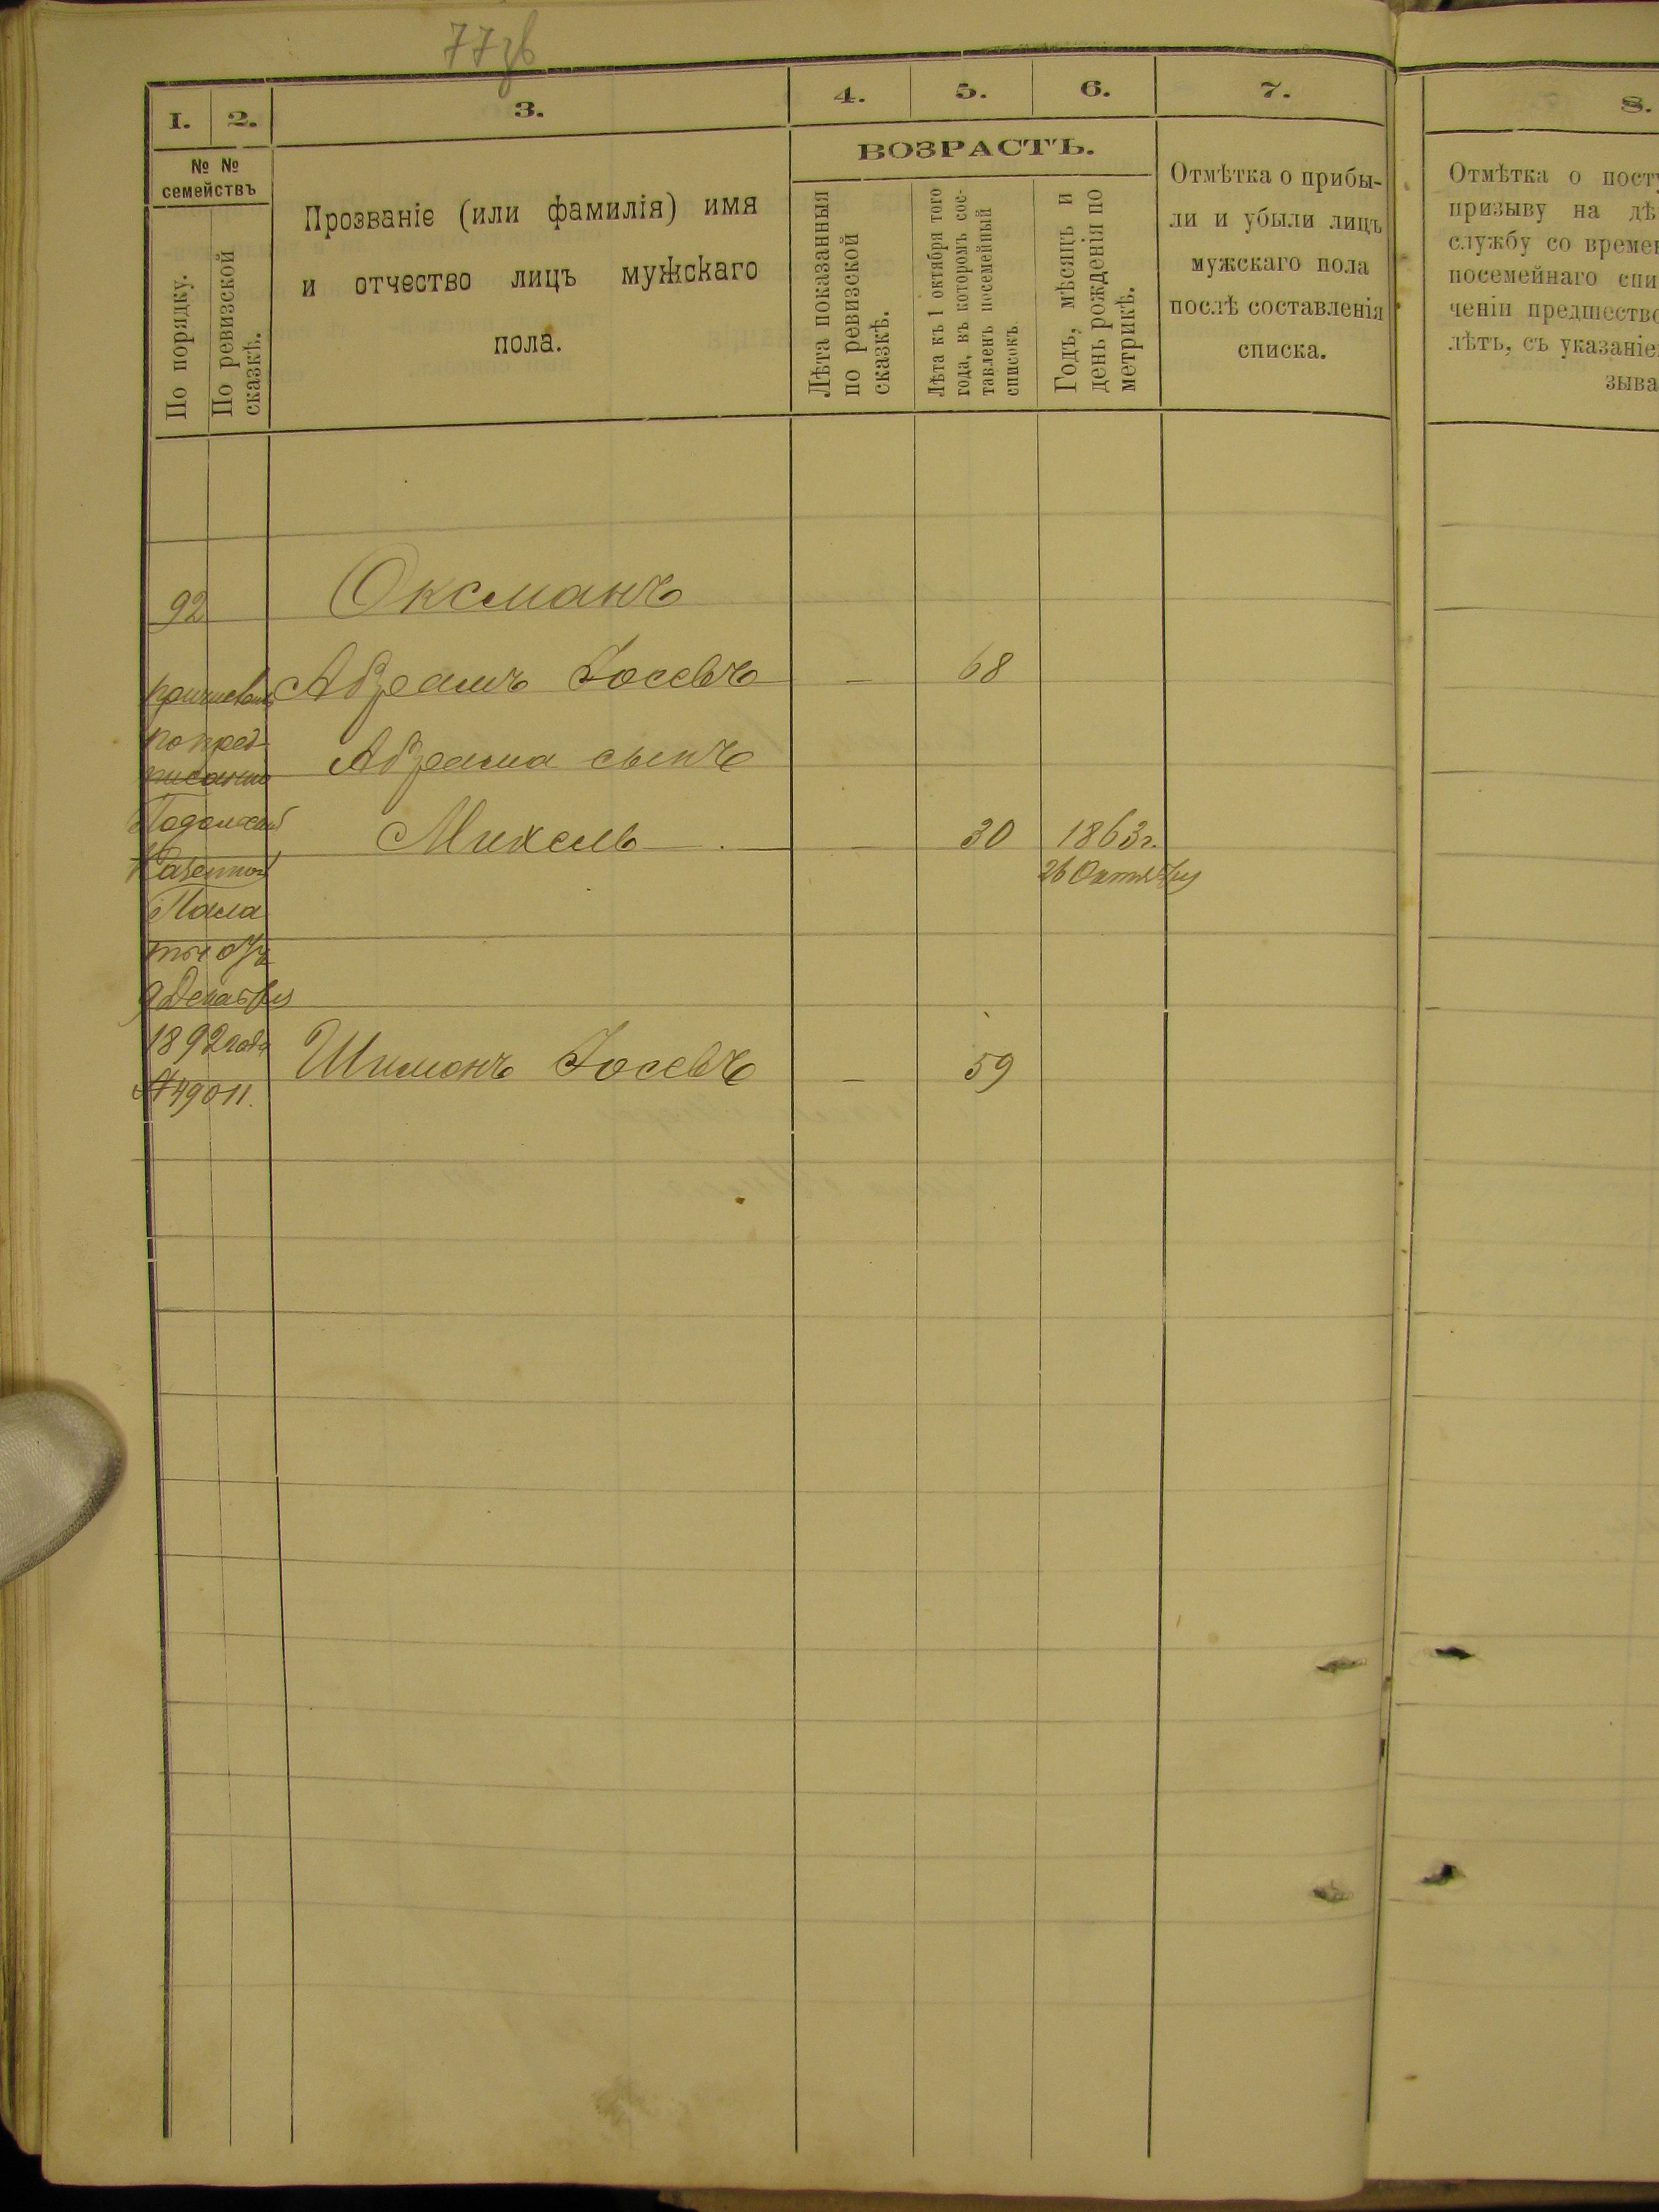 77зв
1.
2.
3.
4.
5.
6.
7.
8.
№ №
семействъ
По порядку.
По ревизской
сказкѣ.
Прозваніе (или фамилія) имя
и отчество лицъ мужскаго
пола.
ВОЗРАСТЪ.
Лѣта показанныя
по ревизской
сказкѣ.
Лѣта къ 1 октября того
года, въ которомъ сос-
тавленъ посемейный
списокъ.
Годъ, мѣсяцъ и
день рожденія по
метрикѣ.
Отмѣтка о прибы-
ли и убыли лицъ
мужскаго пола
послѣ составленія
списка.
Отмѣтка о посту
призыву на дѣ
службу со времен
посемейнаго спи
ченіи предшество
лѣтъ, съ указаніе
зыва
92
Оксманъ
причислены
по пред-
писанію
Подольской
Казенной
Пала
ты отъ
9 Декабря
1892 года
№ 49011.
Абрамъ Іосевъ
—
68
Абрама сынъ
Михель
—
30
1863 г.
26 Октября
Шимонъ Іосевъ
—
59